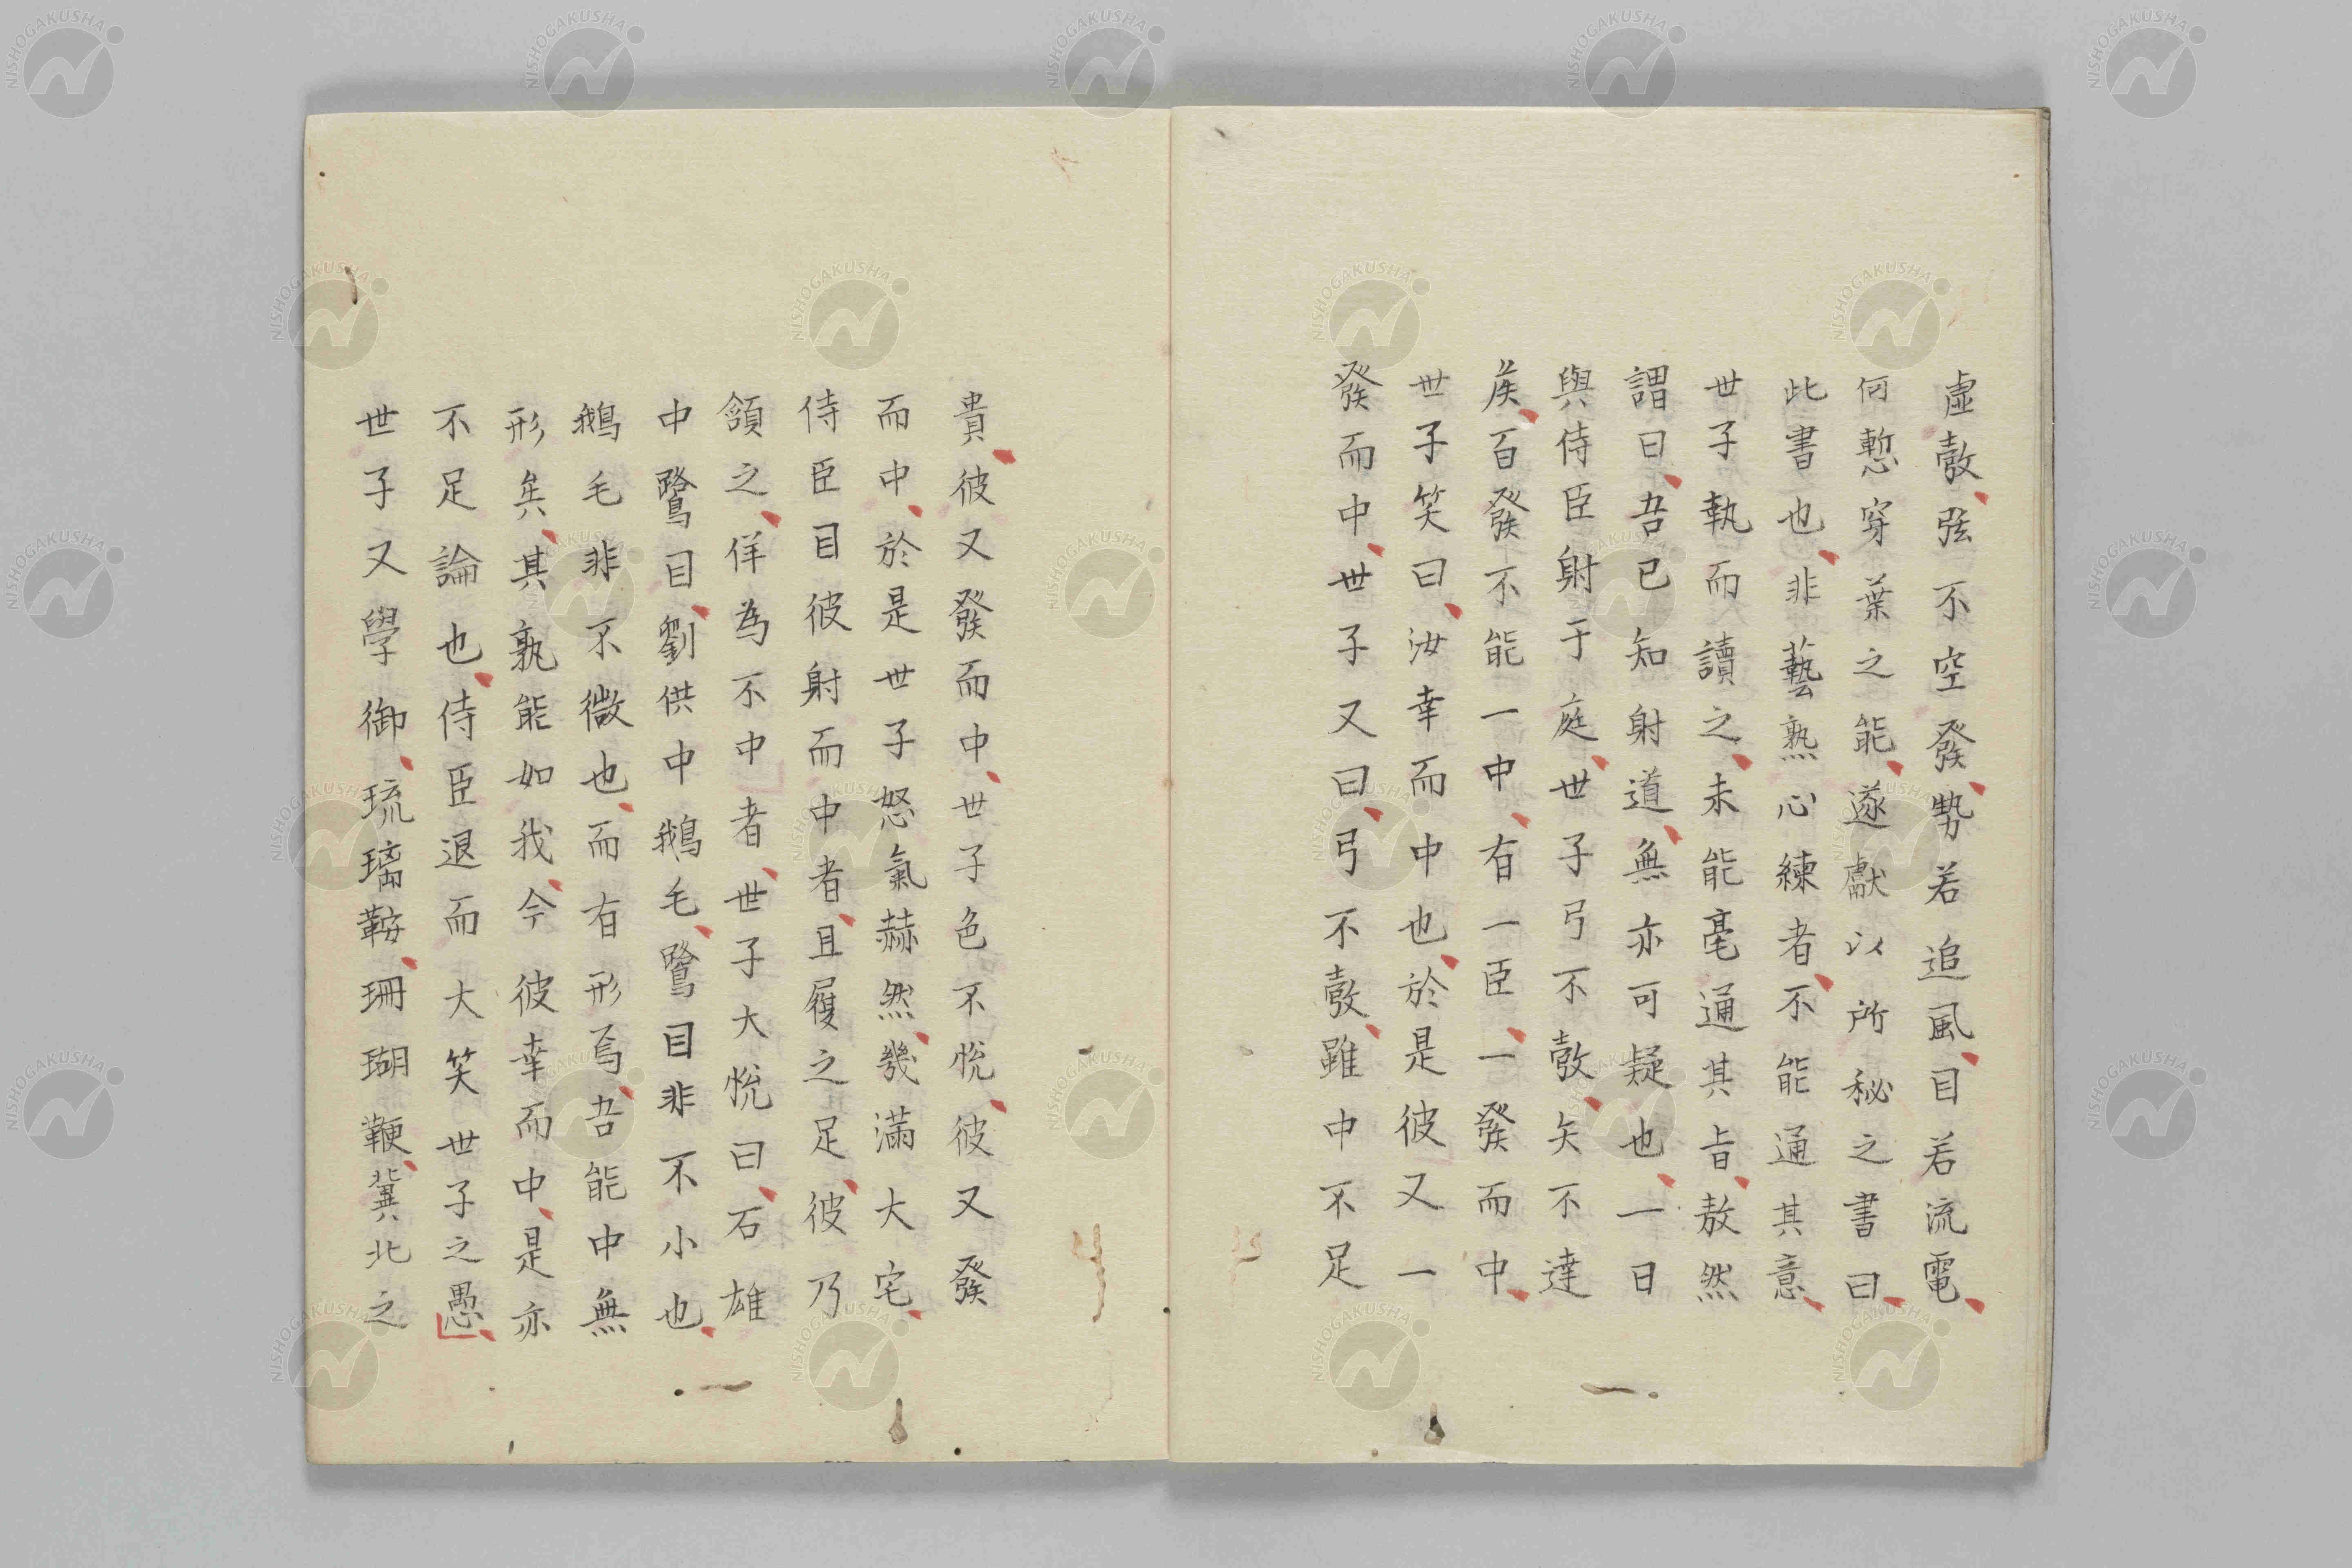 虛彀、弦不空發、勢若追風、目若流電、
何慙穿葉之能、遂獻以所秘之書曰、
此書也、非藝熟心練者、不能通其意、
世子執而讀之、未能毫通其旨、敖然
謂曰、吾已知射道、無亦可疑也、一日
與侍臣射于庭、世子弓不彀、矢不達
侯、百發不能一中、有一臣、一發而中、
世子笑曰、汝幸而中也、於是彼又一
發而中、世子又曰、弓不彀、雖中不足
貴、彼又發而中、世子色不悅、彼又發
而中、於是世子怒氣赫然、幾滿大宅、
侍臣目彼射而中者、且履之足、彼乃
頷之、佯為不中者、世子大悅曰、石雄
中鷺目、劉供中鵝毛、鷺目非不小也、
鵝毛非不微也、而有形焉、吾能中無
形矣、其孰能如我、今彼幸而中、是亦
不足論也、侍臣退而大笑世子之愚、
世子又學御、琉璃鞍、珊瑚鞭、冀北之
NISHOGAKUSHA